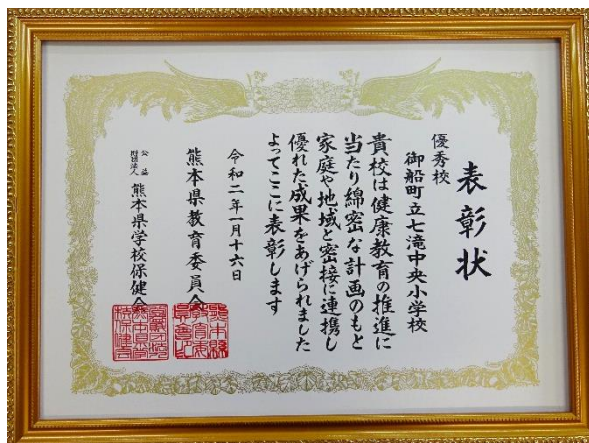 表彰状
優秀校
御船町立七滝中央小学校
貴校は健康教育の推進に
当たり綿密な計画のもと
家庭や地域と密接に連携し
優れた成果をあげられました
よってここに表彰します
令和二年一月十六日
熊本県教育委員会
公益
財団法人
熊本県学校保健会